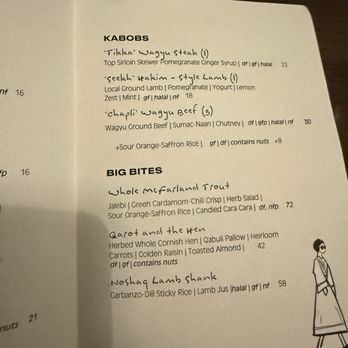 KABOBS
'Tikka' Wagyu Steak (1)
Top Sirloin Skewer Pomegranate Ginger Syrup | df | gf | halal 22
'Seekh' Hakim - Style Lamb (1)
Local Ground Lamb | Pomegranate | Yogurt | Lemon
Zest | Mint | gf | halal | nf 18
'Chapli' Wagyu Beef (3)
Wagyu Ground Beef | Sumac-Naan | Chutney | df | gfp | halal | nf 30
+Sour Orange-Saffron Rice | gf | df | contains nuts +8
BIG BITES
Whole McFarland Trout
Jalebi | Green Cardamom-Chili Crisp | Herb Salad |
Sour Orange-Saffron Rice | Candied Cara Cara | df, nfp 72
Qarot and the Hen
Herbed Whole Cornish Hen | Qabuli Pallow | Heirloom
Carrots | Golden Raisin | Toasted Almond | 42
df | gf | contains nuts
Noshaq Lamb Shank
Garbanzo-Dill Sticky Rice | Lamb Jus |halal | gf | nf 58
nf 16
16
nuts 21